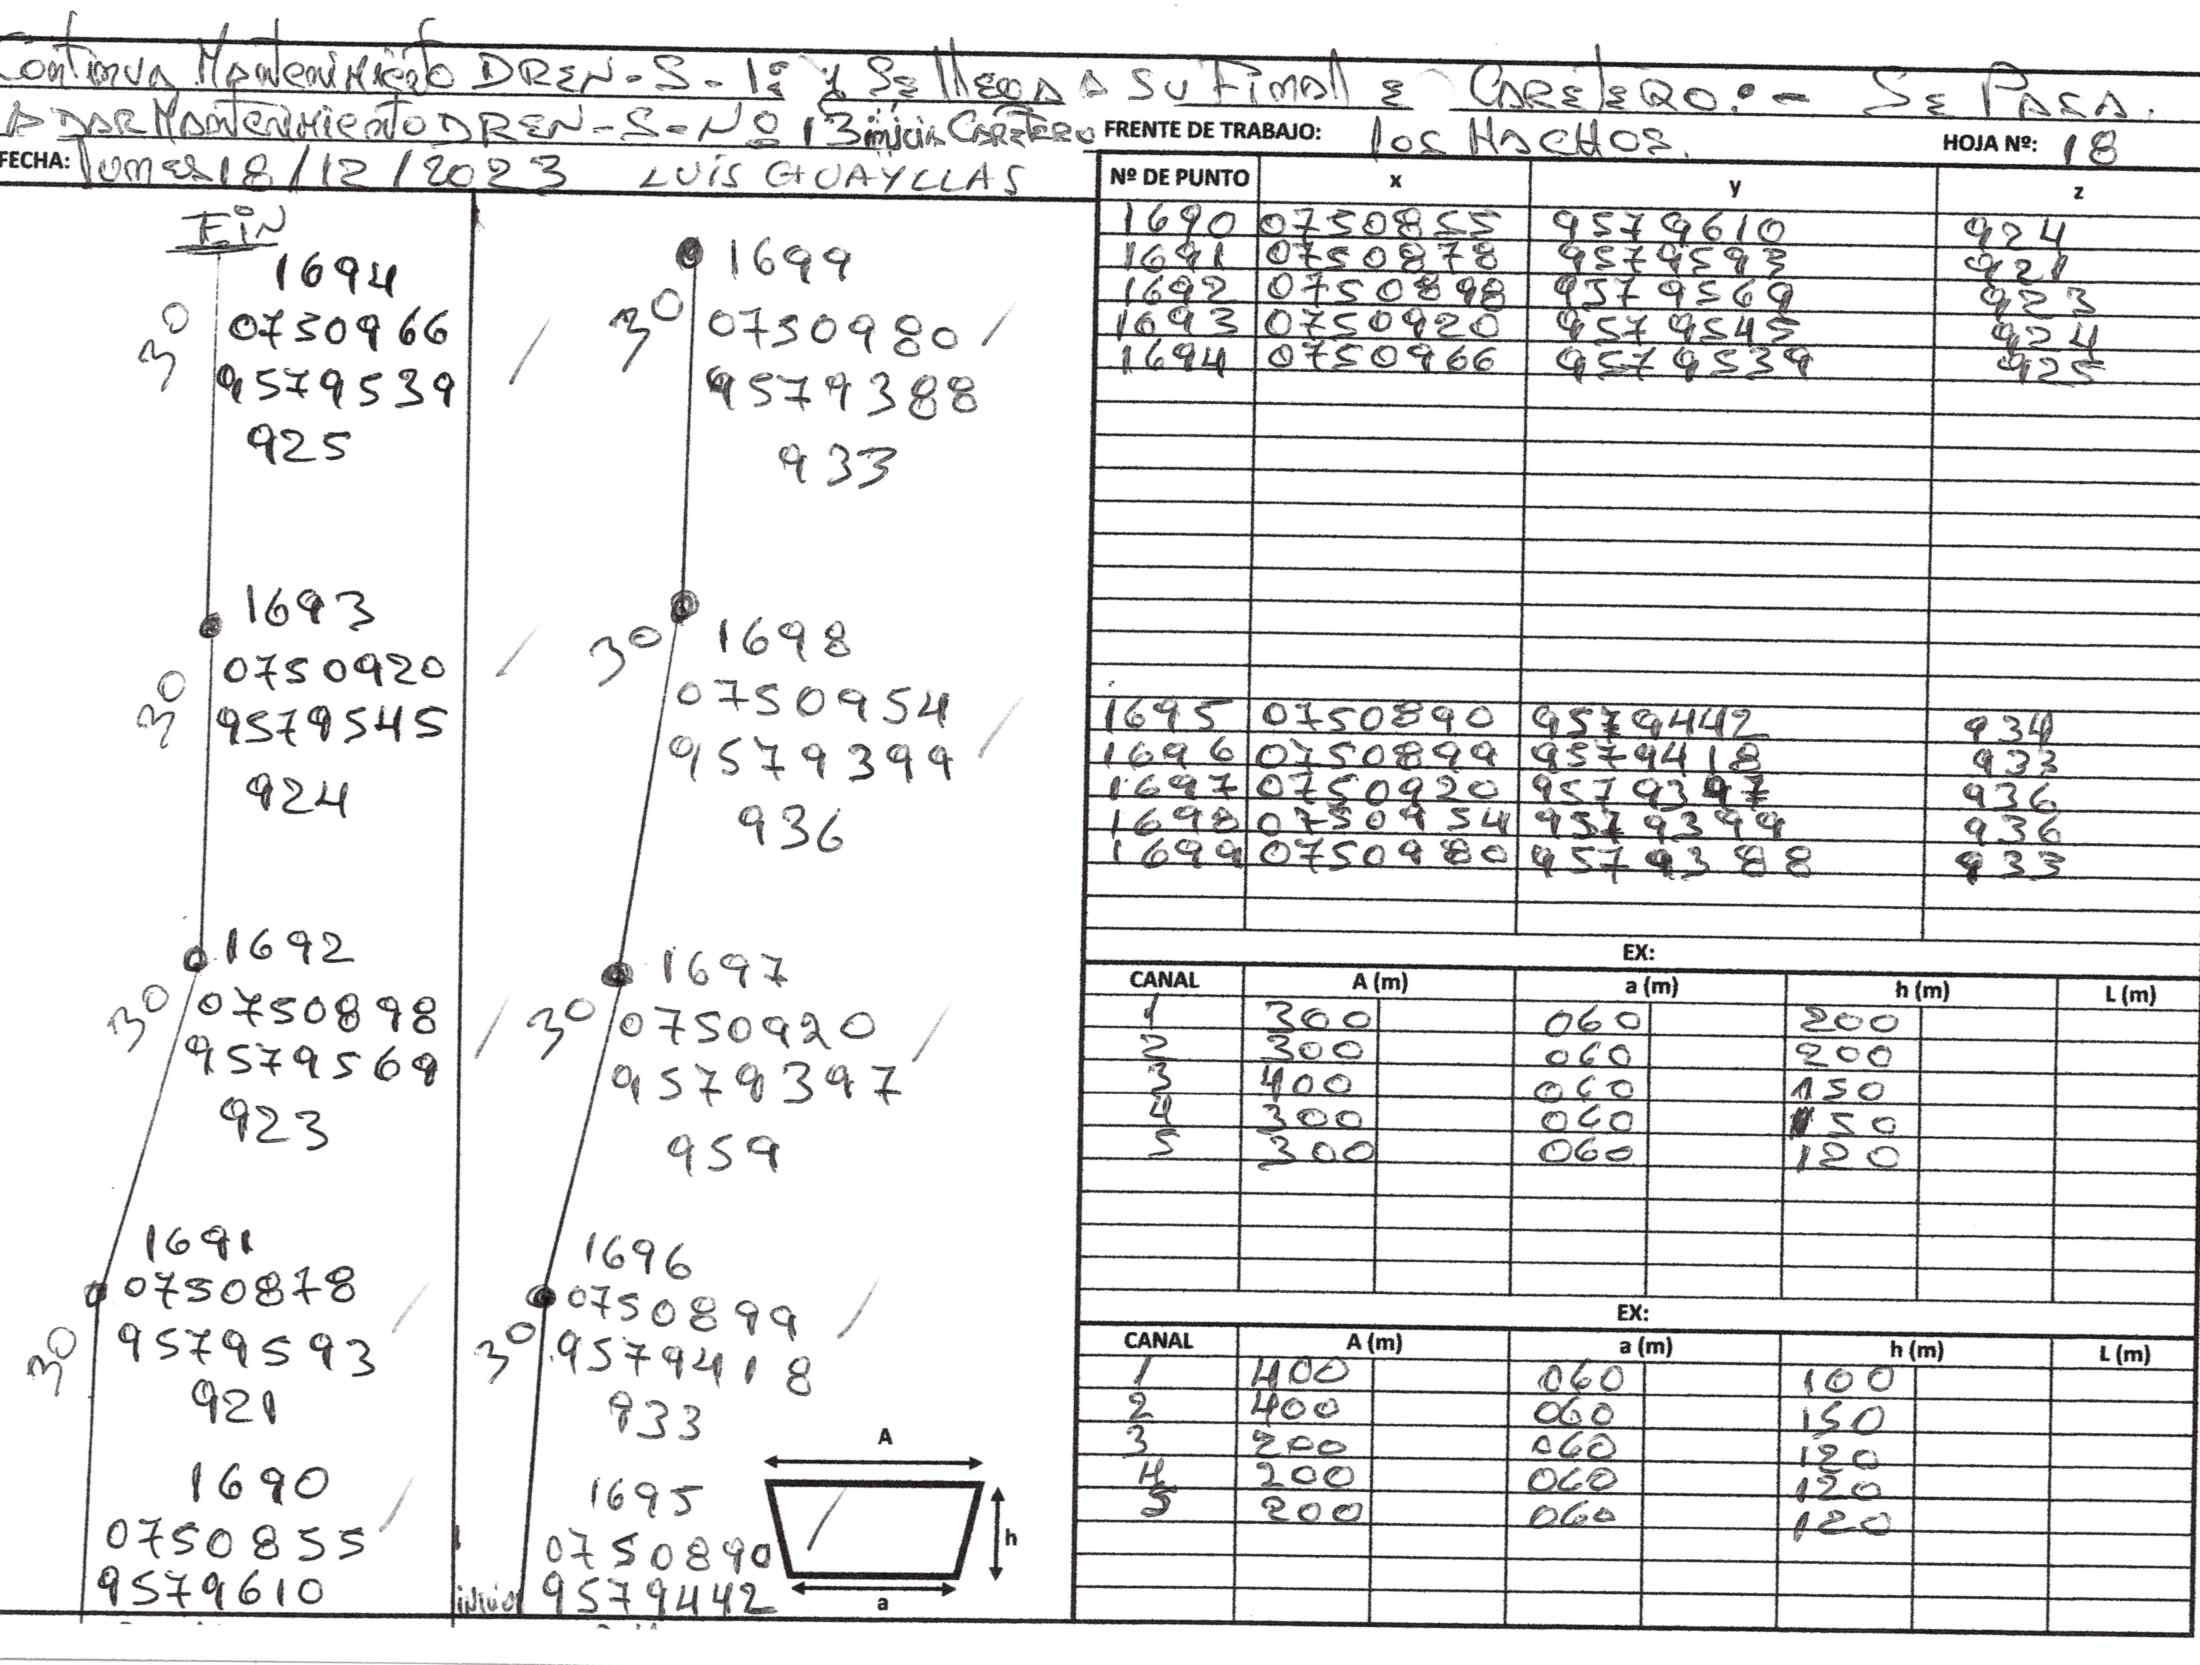 Continua Mantenimiento DREN-S-1e y Se llega A su Final e CARETERO:- Se PASA.
A DAR Mantenimiento DREN-S-Nº 13 inicia Caretero
FRENTE DE TRABAJO: los HACHOS. HOJA Nº: 18
FECHA: lunes 18/12/2023 LUIS GUAYLLAS
FIN
1694
30
0750966
9579539
925
1693
30
0750920
9579545
924
1692
30
0750898
9579569
923
1691
0750878
30
9579593
921
1690
0750855
9579610
1699
30
0750980
9579388
933
1698
30
0750954
9579399
936
1697
30
0750920
9579397
959
1696
0750899
30
9579418
933
1695
0750890
inicio 9579442
A
h
a
Nº DE PUNTO x y z
1690 0750855 9579610 924
1691 0750878 9579593 921
1692 0750898 9579569 923
1693 0750920 9579545 924
1694 0750966 9579539 925
1695 0750890 9579442 934
1696 0750899 9579418 933
1697 0750920 9579397 936
1698 0750954 9579399 936
1699 0750980 9579388 933
EX:
CANAL A (m) a (m) h (m) L (m)
1 300 060 200
2 300 060 200
3 400 060 150
4 300 060 150
5 300 060 120
EX:
CANAL A (m) a (m) h (m) L (m)
1 400 060 100
2 400 060 150
3 200 060 120
4 200 060 120
5 200 060 120